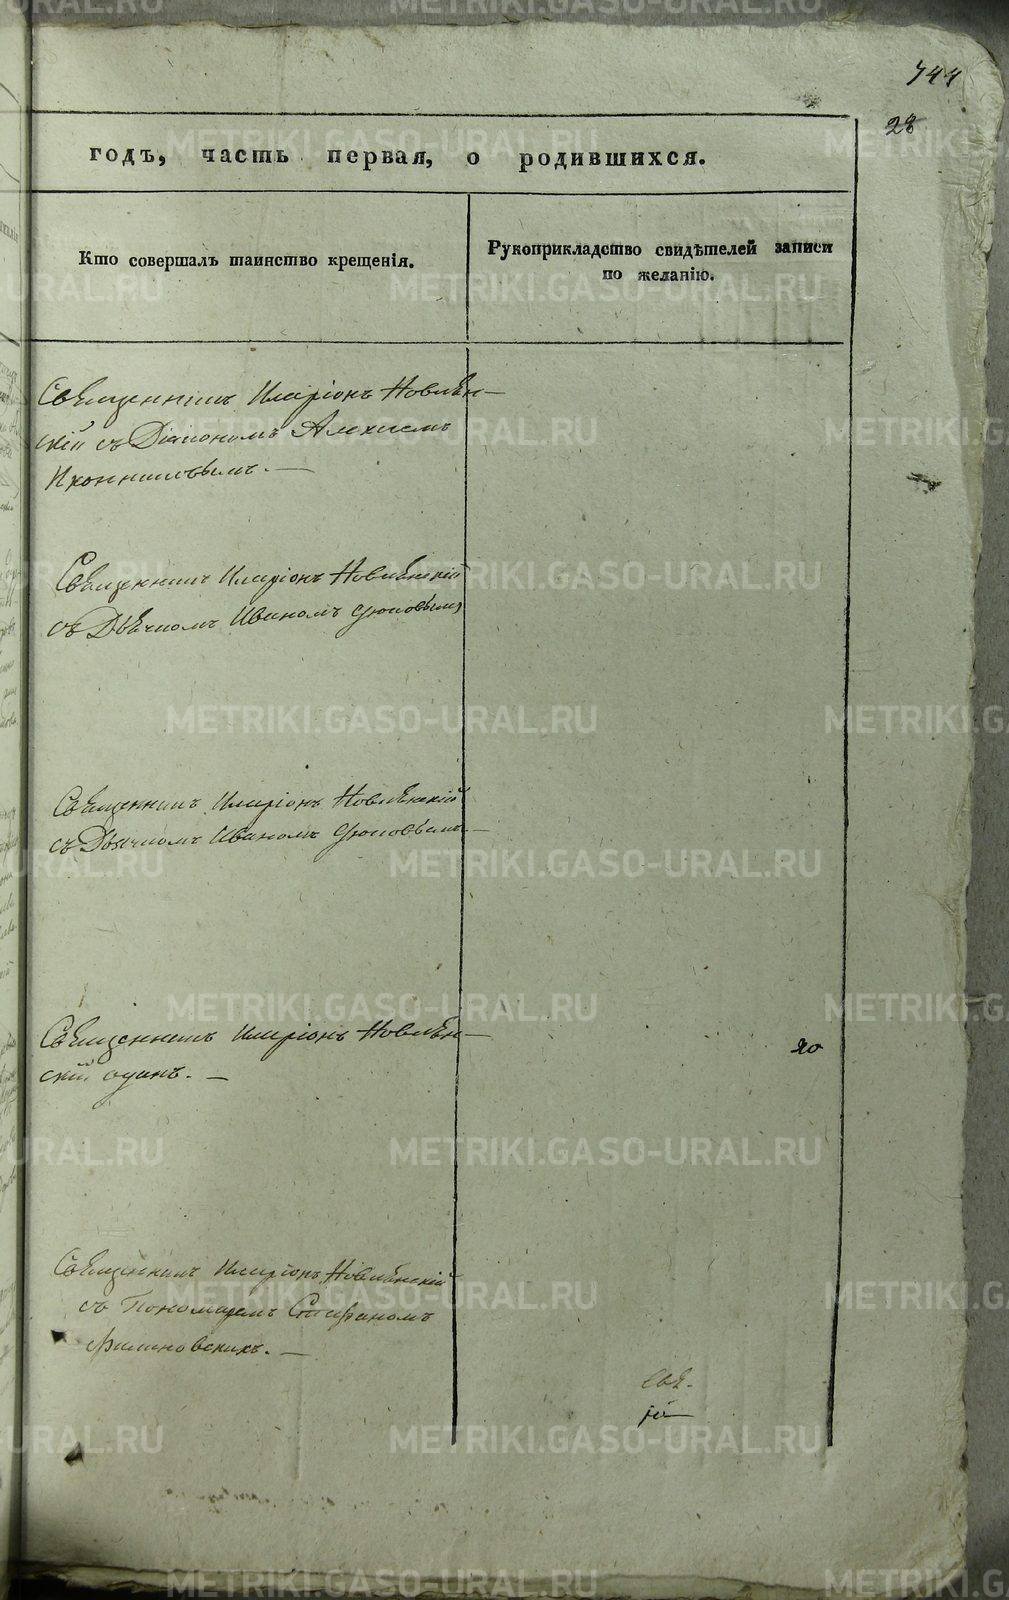 744
28
годъ, часть первая, о родившихся.
Кто совершалъ таинство крещенія.
Рукоприкладство свидѣтелей записи
по желанію.
Священникъ Иларіонъ Новлян-
скій съ Діакономъ Алексіемъ
Иконниковымъ.
Священникъ Иларіонъ Новлянскій
съ Дьячкомъ Иваномъ
Священникъ Иларіонъ Новлянскій
съ Дьячкомъ Иваномъ
Священникъ Иларіонъ Новлян-
скій одинъ.
20
Священникъ Иларіонъ Новлянскій
съ Пономаремъ Стефаномъ
Филиновскихъ.
Свя.
METRIKI.GASO-URAL.RU